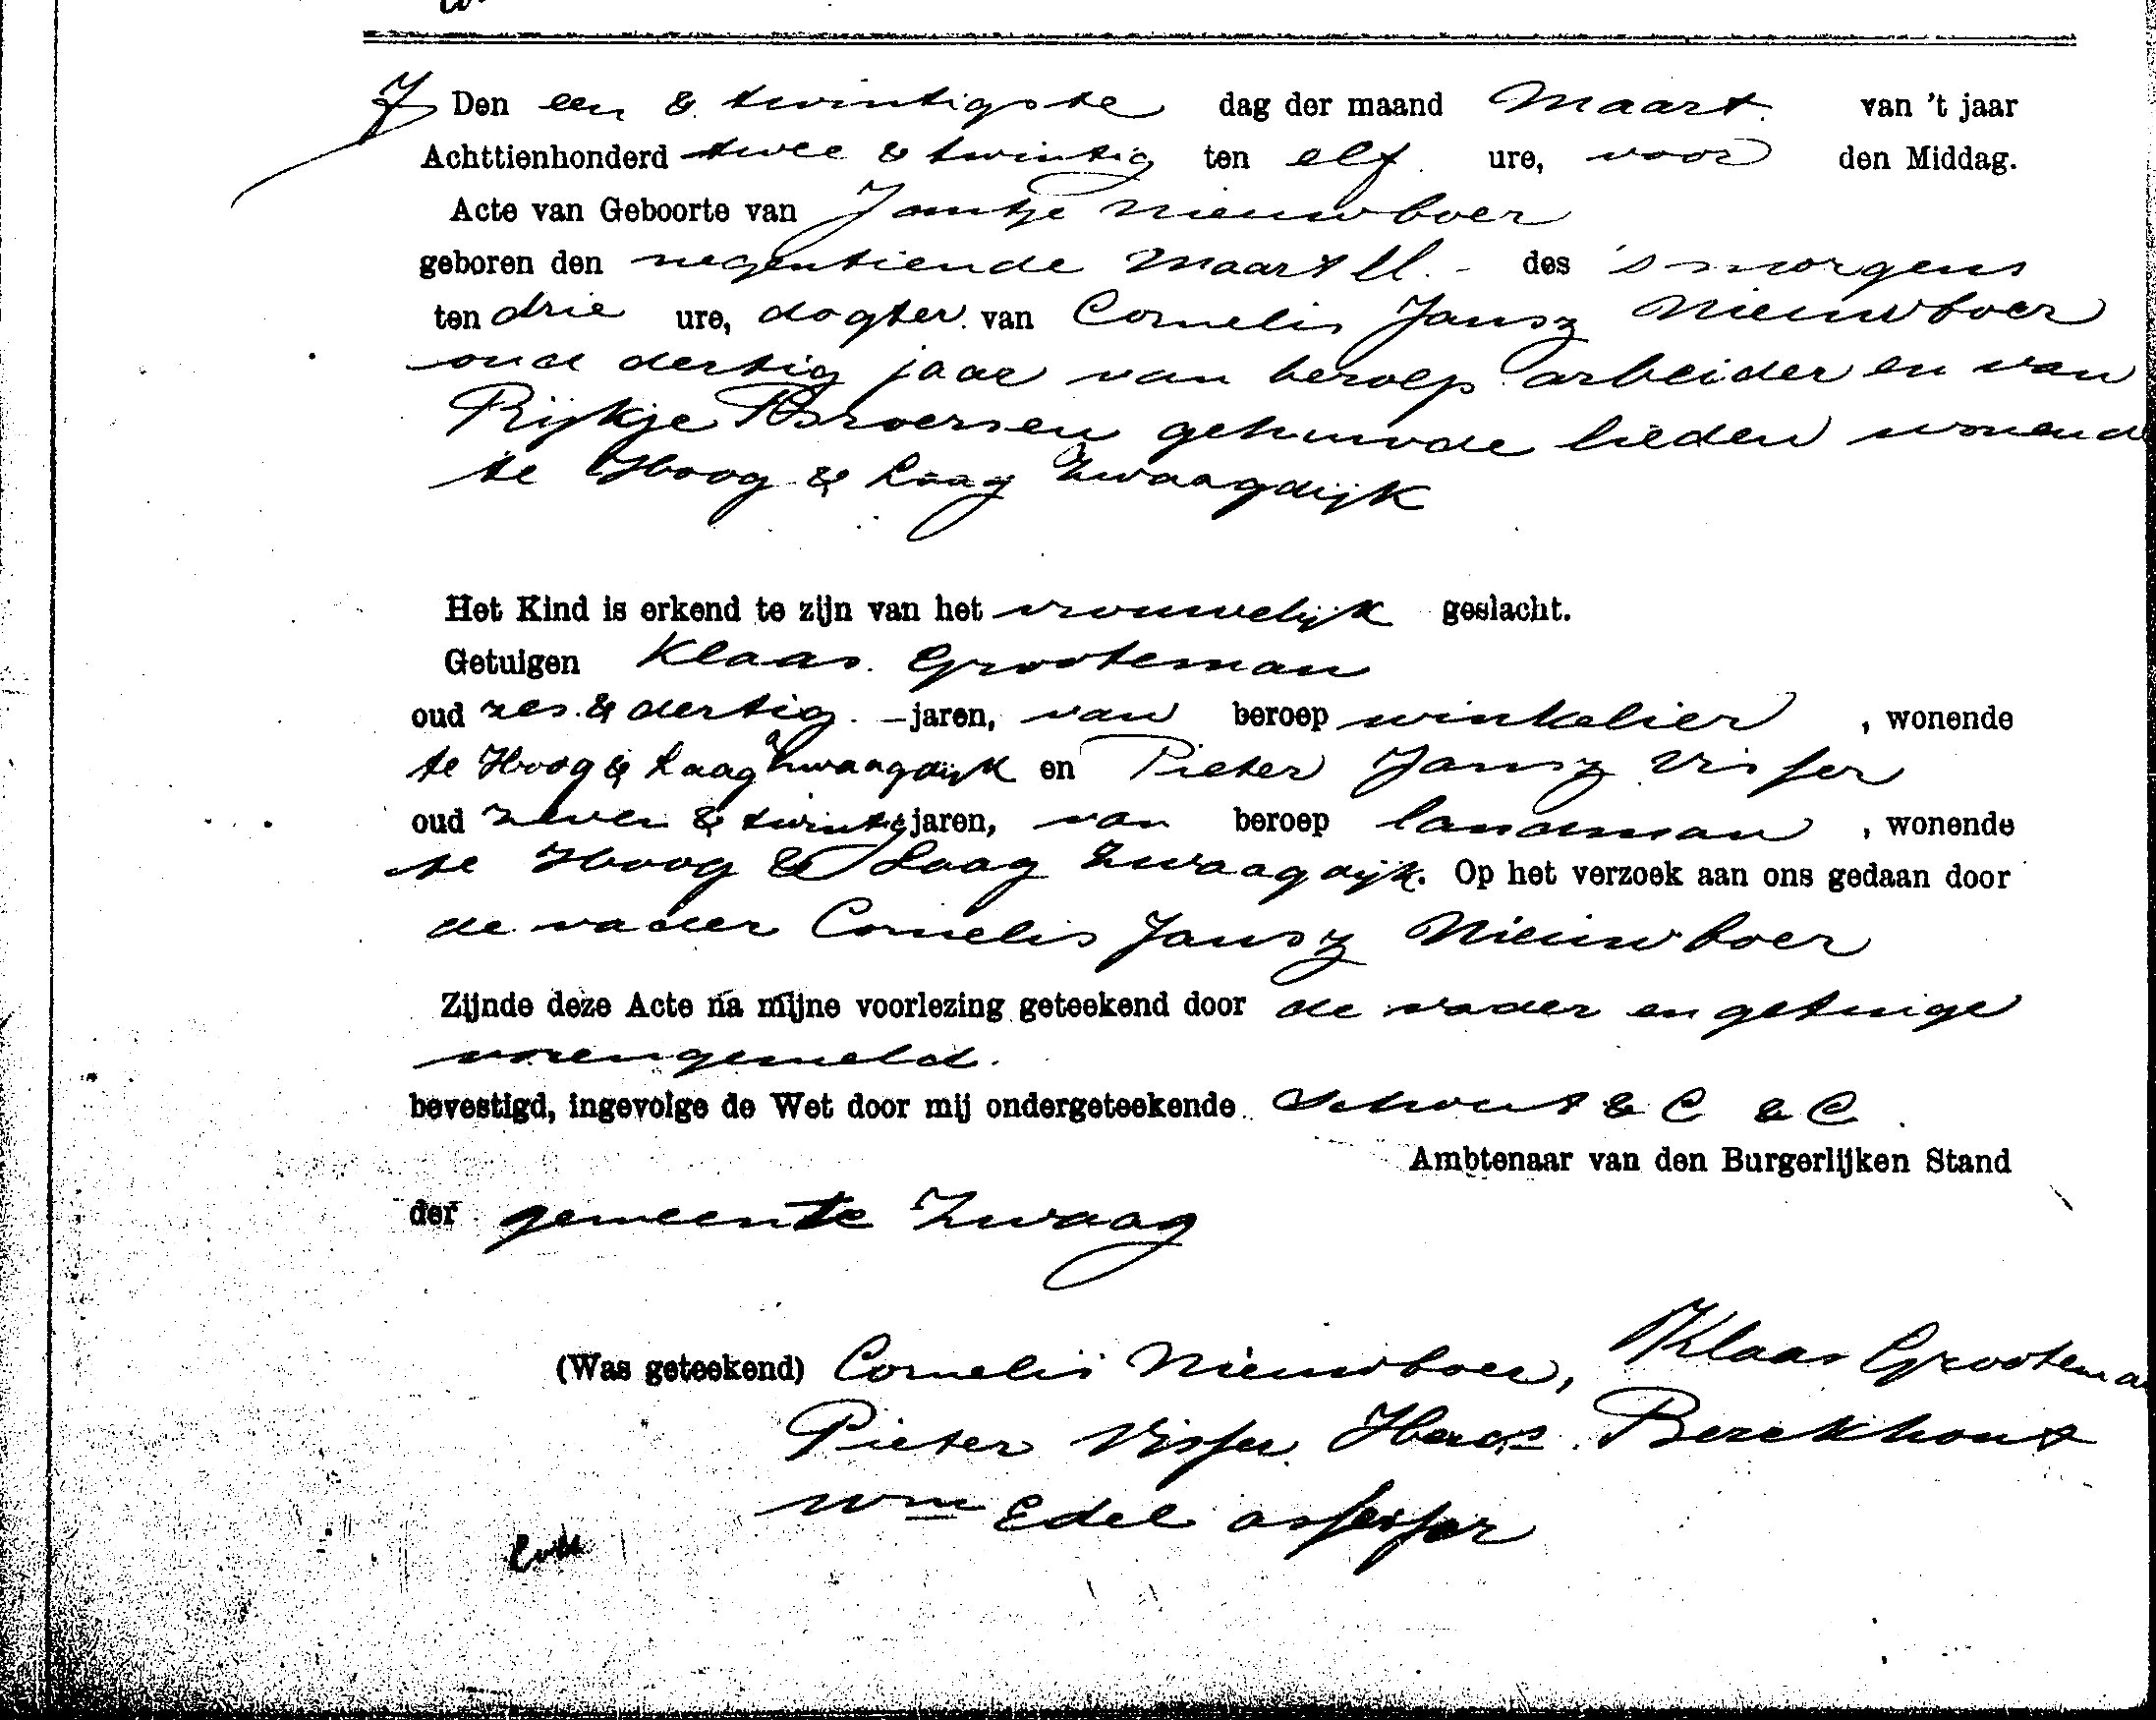 7 Den een & twintigste dag der maand Maart van 't jaar
Achttienhonderd twee & twintig ten elf ure, voor den Middag.
Acte van Geboorte van Jantje Nieuwboer
geboren den negentiende Maart ll. - des 's morgens
ten drie ure, dogter van Cornelis Jansz Nieuwboer
oud dertig jaar van beroep arbeider en van
Rijkje Broersen gehuwde lieden wonende
te Hoog & Laag Zwaagdijk
Het Kind is erkend te zijn van het vrouwelijk geslacht.
Getuigen Klaas Grooteman
oud zes & dertig - jaren, van beroep winkelier , wonende
te Hoog & Laag Zwaagdijk en Pieter Jansz Visser
oud zeven & twintig jaren, van beroep landman , wonende
te Hoog & Laag Zwaagdijk. Op het verzoek aan ons gedaan door
de vader Cornelis Jansz Nieuwboer
Zijnde deze Acte na mijne voorlezing geteekend door de vader en getuige
vorengemeld.
bevestigd, ingevolge de Wet door mij ondergeteekende Schout & C & C.
Ambtenaar van den Burgerlijken Stand
der gemeente Zwaag
(Was geteekend) Cornelis Nieuwboer, Klaas Grooteman
Pieter Visser Berckhout
Wm Edel assessor